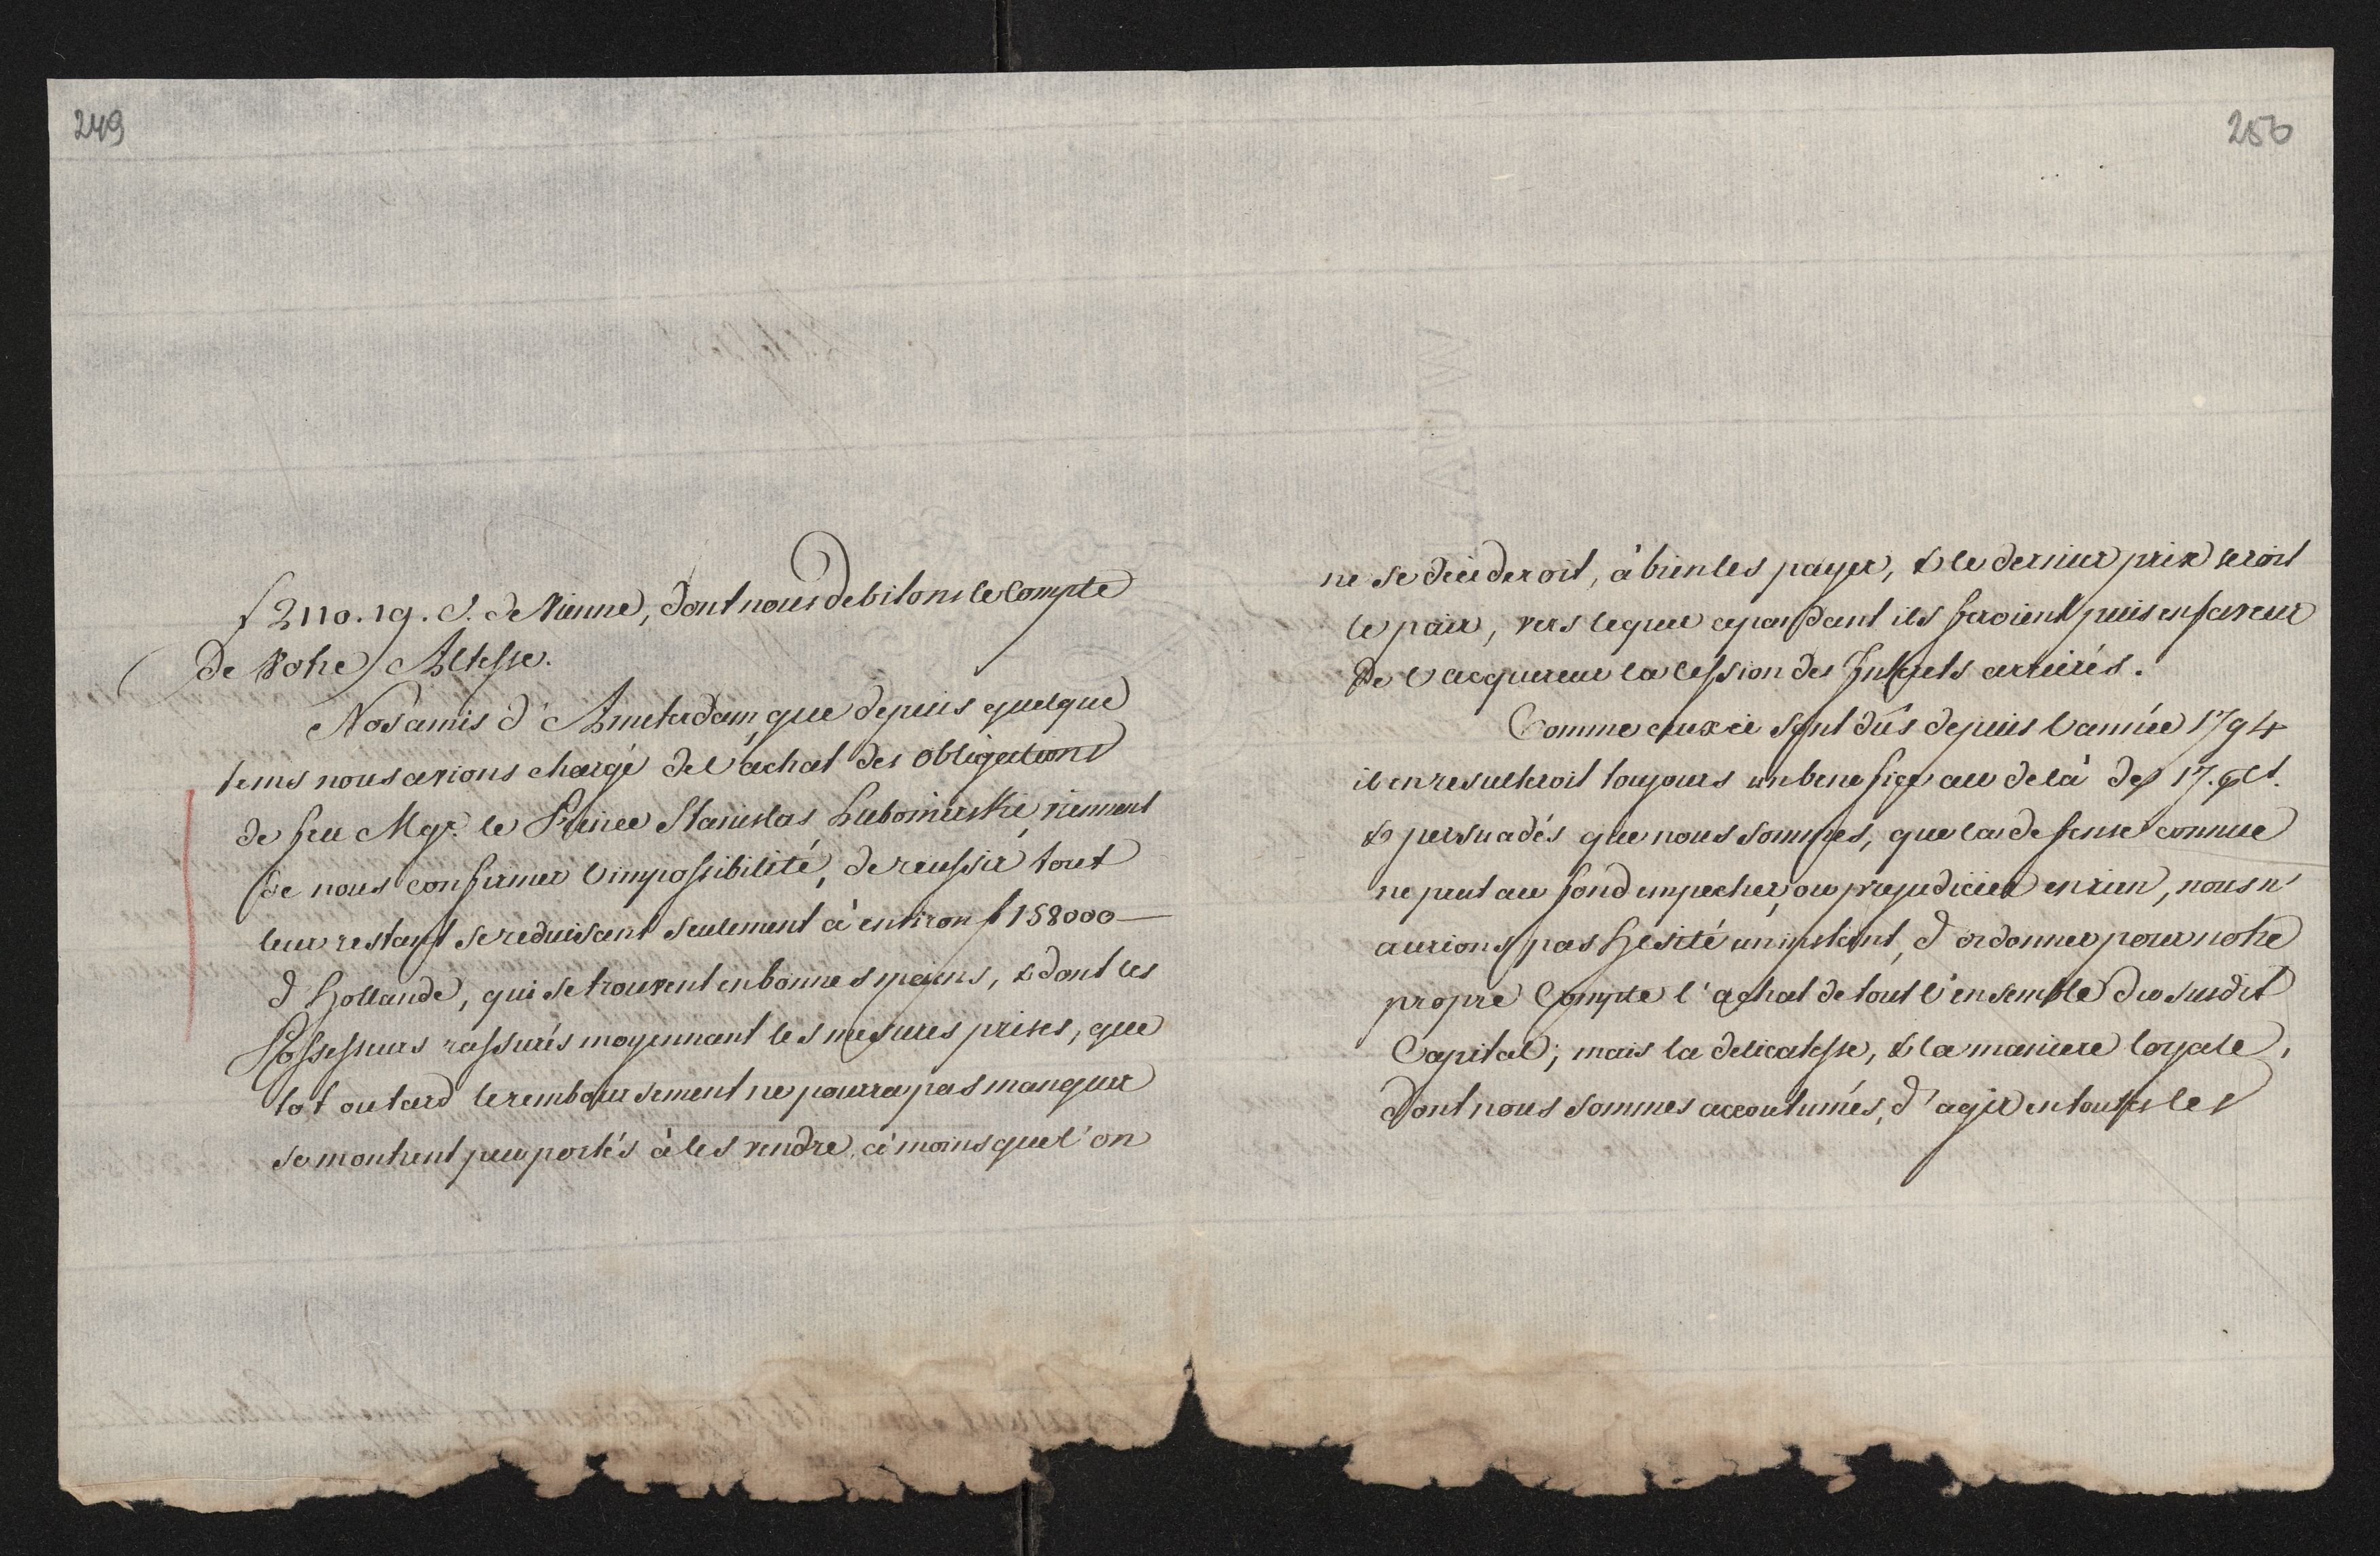 249
f 2110.19. C. de Vienne, dont nous debitons le Compte
de Votre Altesse.
Nos amis d'Amsterdam, que depuis quelque
tems nous avions chargé de l'achat des obligations
de feu Mgr. le Prince Stanislas Lubomirski, viennent
de nous confirmer l'impossibilité, de reussir tout
leur restant se reduisant seulement à environ f 158000 —
d'Hollande, qui se trouvent en bonnes mains, & dont les
Possesseurs rassurés moyennant les mesures prises, que
tot ou tard le remboursement ne pourra pas manquer
se montrent peu portés à les vendre, à moins que l'on
250
ne se decideroit, à bien les payer, & le dernier prix seroit
le pair, vers lequel cependant ils feroient puis en faveur
de l'acquereur la cession des Interets arrierés.
Comme ceux ci sont dûs depuis l'année 1794
il en resulteroit toujours un benefice au delà de 17. pCt.
& persuadés que nous sommes, que la defense connue
ne peut au fond empecher, ou prejudicier en rien, nous n'
aurions pas hesité un instant, d'ordonner pour notre
propre Compte l'achat de tout l'ensemble du susdit
Capital; mais la delicatesse, & la maniere loyale,
dont nous sommes accoutumés, d'agir en toutes les